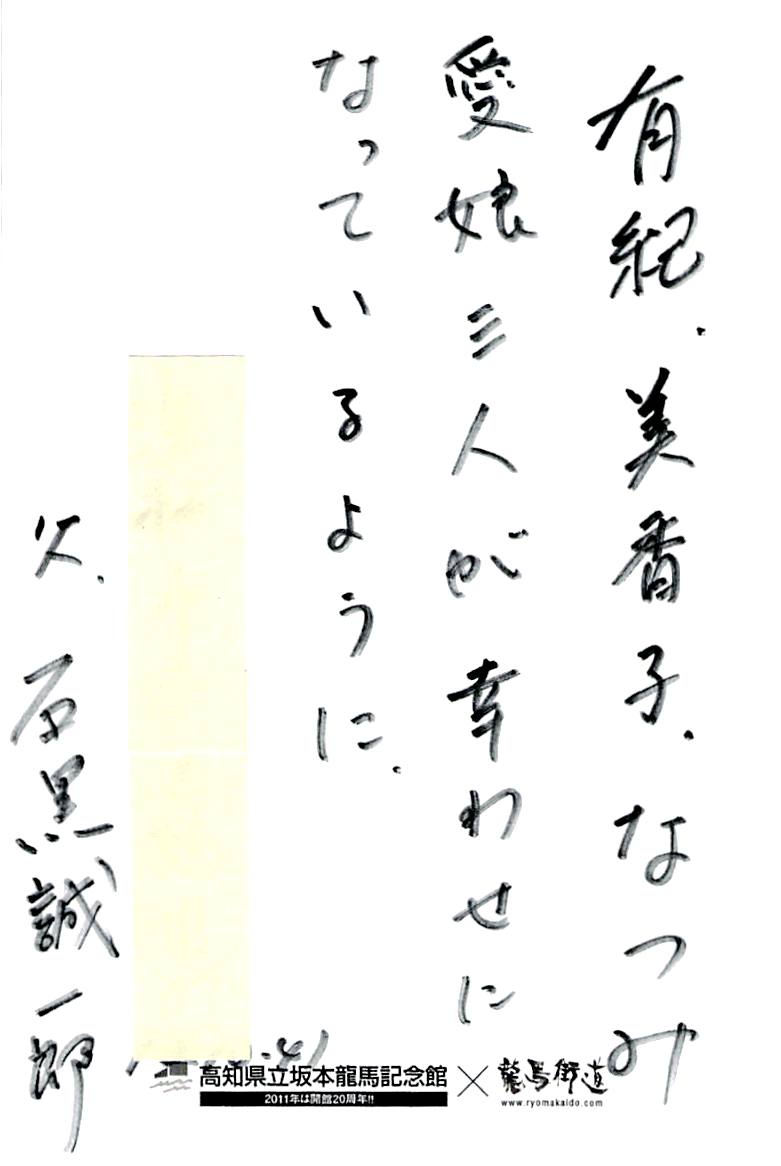 有紀.美香子.なつみ
愛娘三人が幸わせに
なっているように.
父.石黒誠一郎
高知県立坂本龍馬記念館×龍馬街道
2011年は開館20周年!!
www.ryomakaido.com